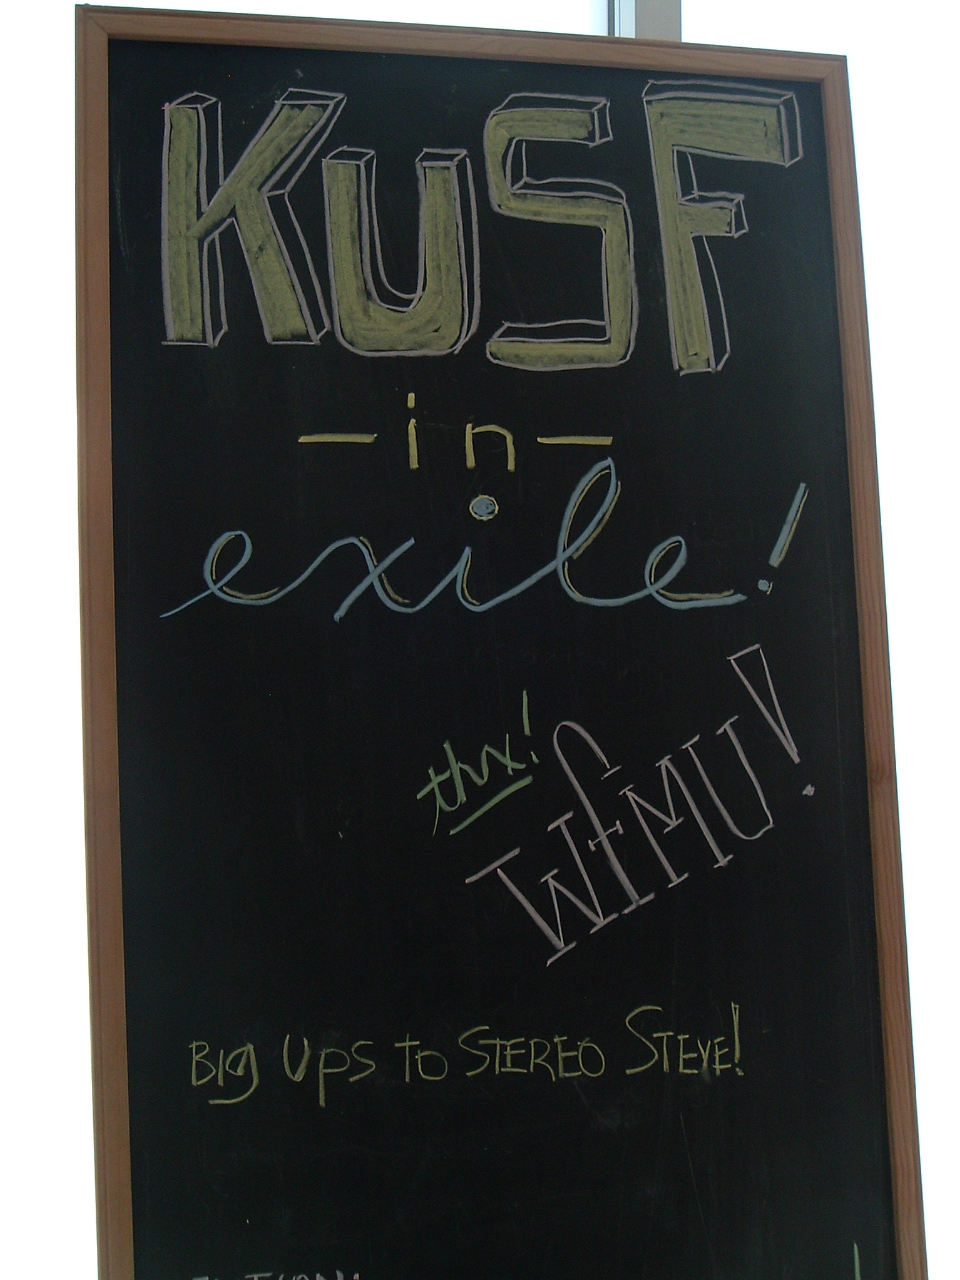 KUSF
-in-
exile!
thx!
WFMU!
BIg Ups to STEREO STEVE!